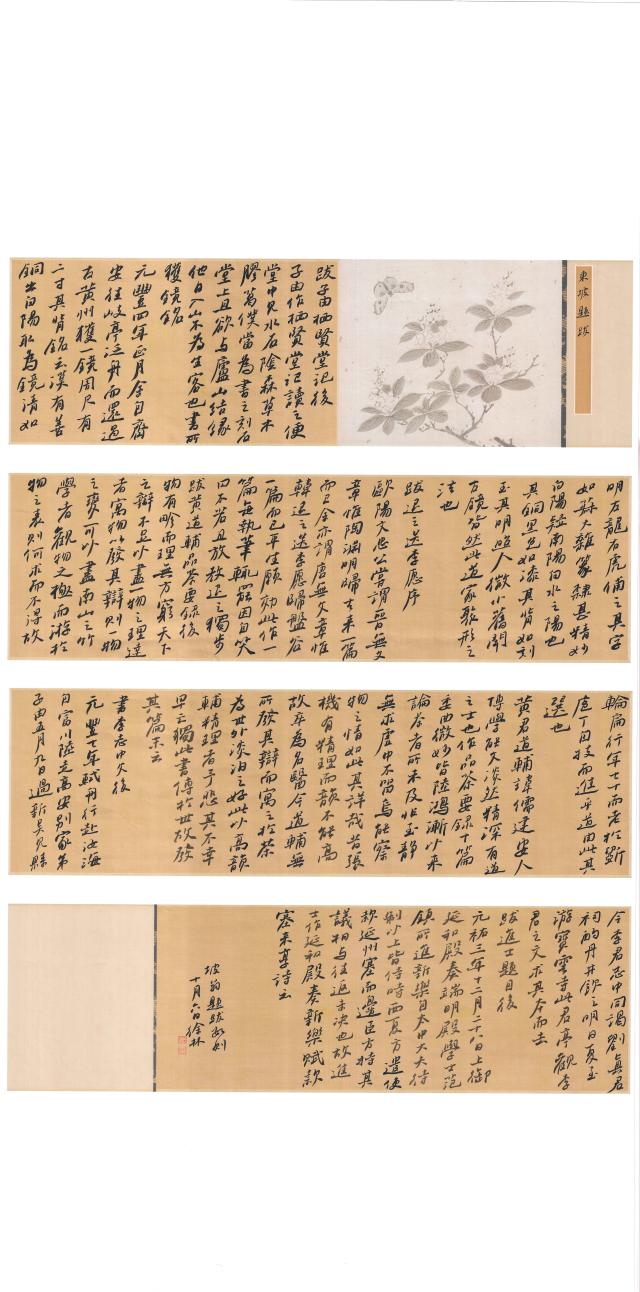 東坡題跋
跋子由栖賢堂記後
子由作栖賢堂記讀之便
堂中見水石陰森草木
膠葛僕當為書之刻石
堂上且欲与廬山結緣
他日入山不為生客也書所
獲鏡銘
元豐四年正月余自齊
安往岐亭泛舟而還過
古黃州獲一鏡周尺有
二寸其背銘云漢有善
銅出白陽取為鏡清如
明左龍右虎俌之其字
如菽大雜篆隸甚精妙
白陽疑南陽白水之陽也
其銅黑色如漆其背如刻
玉其明照人微小舊聞
古鏡皆然此道家聚形之
法也
跋退之送李愿序
歐陽文忠公嘗謂晉無文
章惟陶淵明歸去来一篇
而已余亦謂唐無文章惟
韓退之送李愿歸盤谷
一篇而已平生願効此作一
篇每執筆輒罷因自笑
曰不若且放教退之獨步
跋黃道輔品茶要録後
物有畛而理無方窮天下
之辯不足以盡一物之理達
者寓物以發其辯則一物
之變可以盡南山之竹
學者觀物之極而游於
物之表則何求而不得故
輪扁行年七十而老於斲
庖丁自技而進乎道由此其
選也
黃君道輔諱儒建安人
博學能文淡然精深有道
之士也作品茶要録十篇
委曲微妙皆陸鴻漸以来
論茶者所未及非至静
無求虛中不留烏能察
物之情如此其詳哉昔張
機有精理而韻不能高
故卒為名醫今道輔無
所發其辯而寓之於茶
為世外淡泊之好此以高韻
輔精理者予悲其不幸
早亡獨此書傳於世故發
其篇末云
書李志中文後
元豐七年軾舟行赴汝海
自富川陸走高安別家弟
子由五月九日過新吳見縣
令李君志中同謁劉真君
祠酌丹井飲之明日夏至
游寶雲寺此君亭觀李
君之文求其本而去
跋進士題目後
元祐三年十二月二十八日上御
延和殿奏端明殿學士范
鎮所進新樂自太中大夫待
制以上皆侍時西夏方遣使
款延州塞而邊臣方持其
議相与往返未决也故進
士作延和殿奏新樂賦款
塞来享詩云
坡翁題跋數則
十月六日徐林